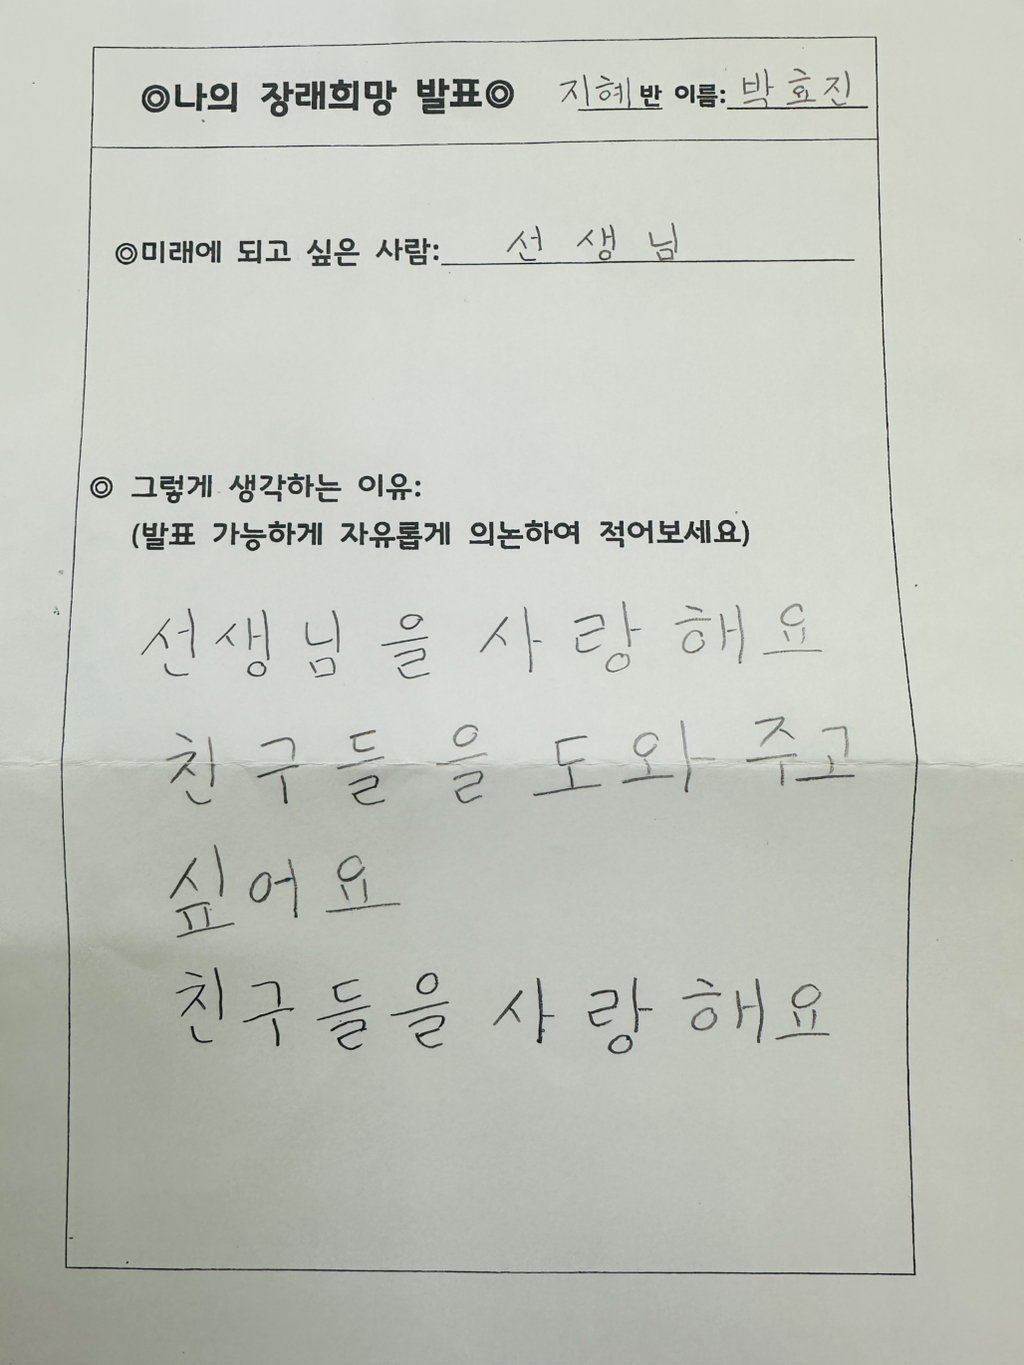 ◎나의 장래희망 발표◎ 지혜반 이름: 박효진
◎미래에 되고 싶은 사람: 선생님
◎ 그렇게 생각하는 이유:
(발표 가능하게 자유롭게 의논하여 적어보세요)
선생님을 사랑해요
친구들을 도와주고
싶어요
친구들을 사랑해요